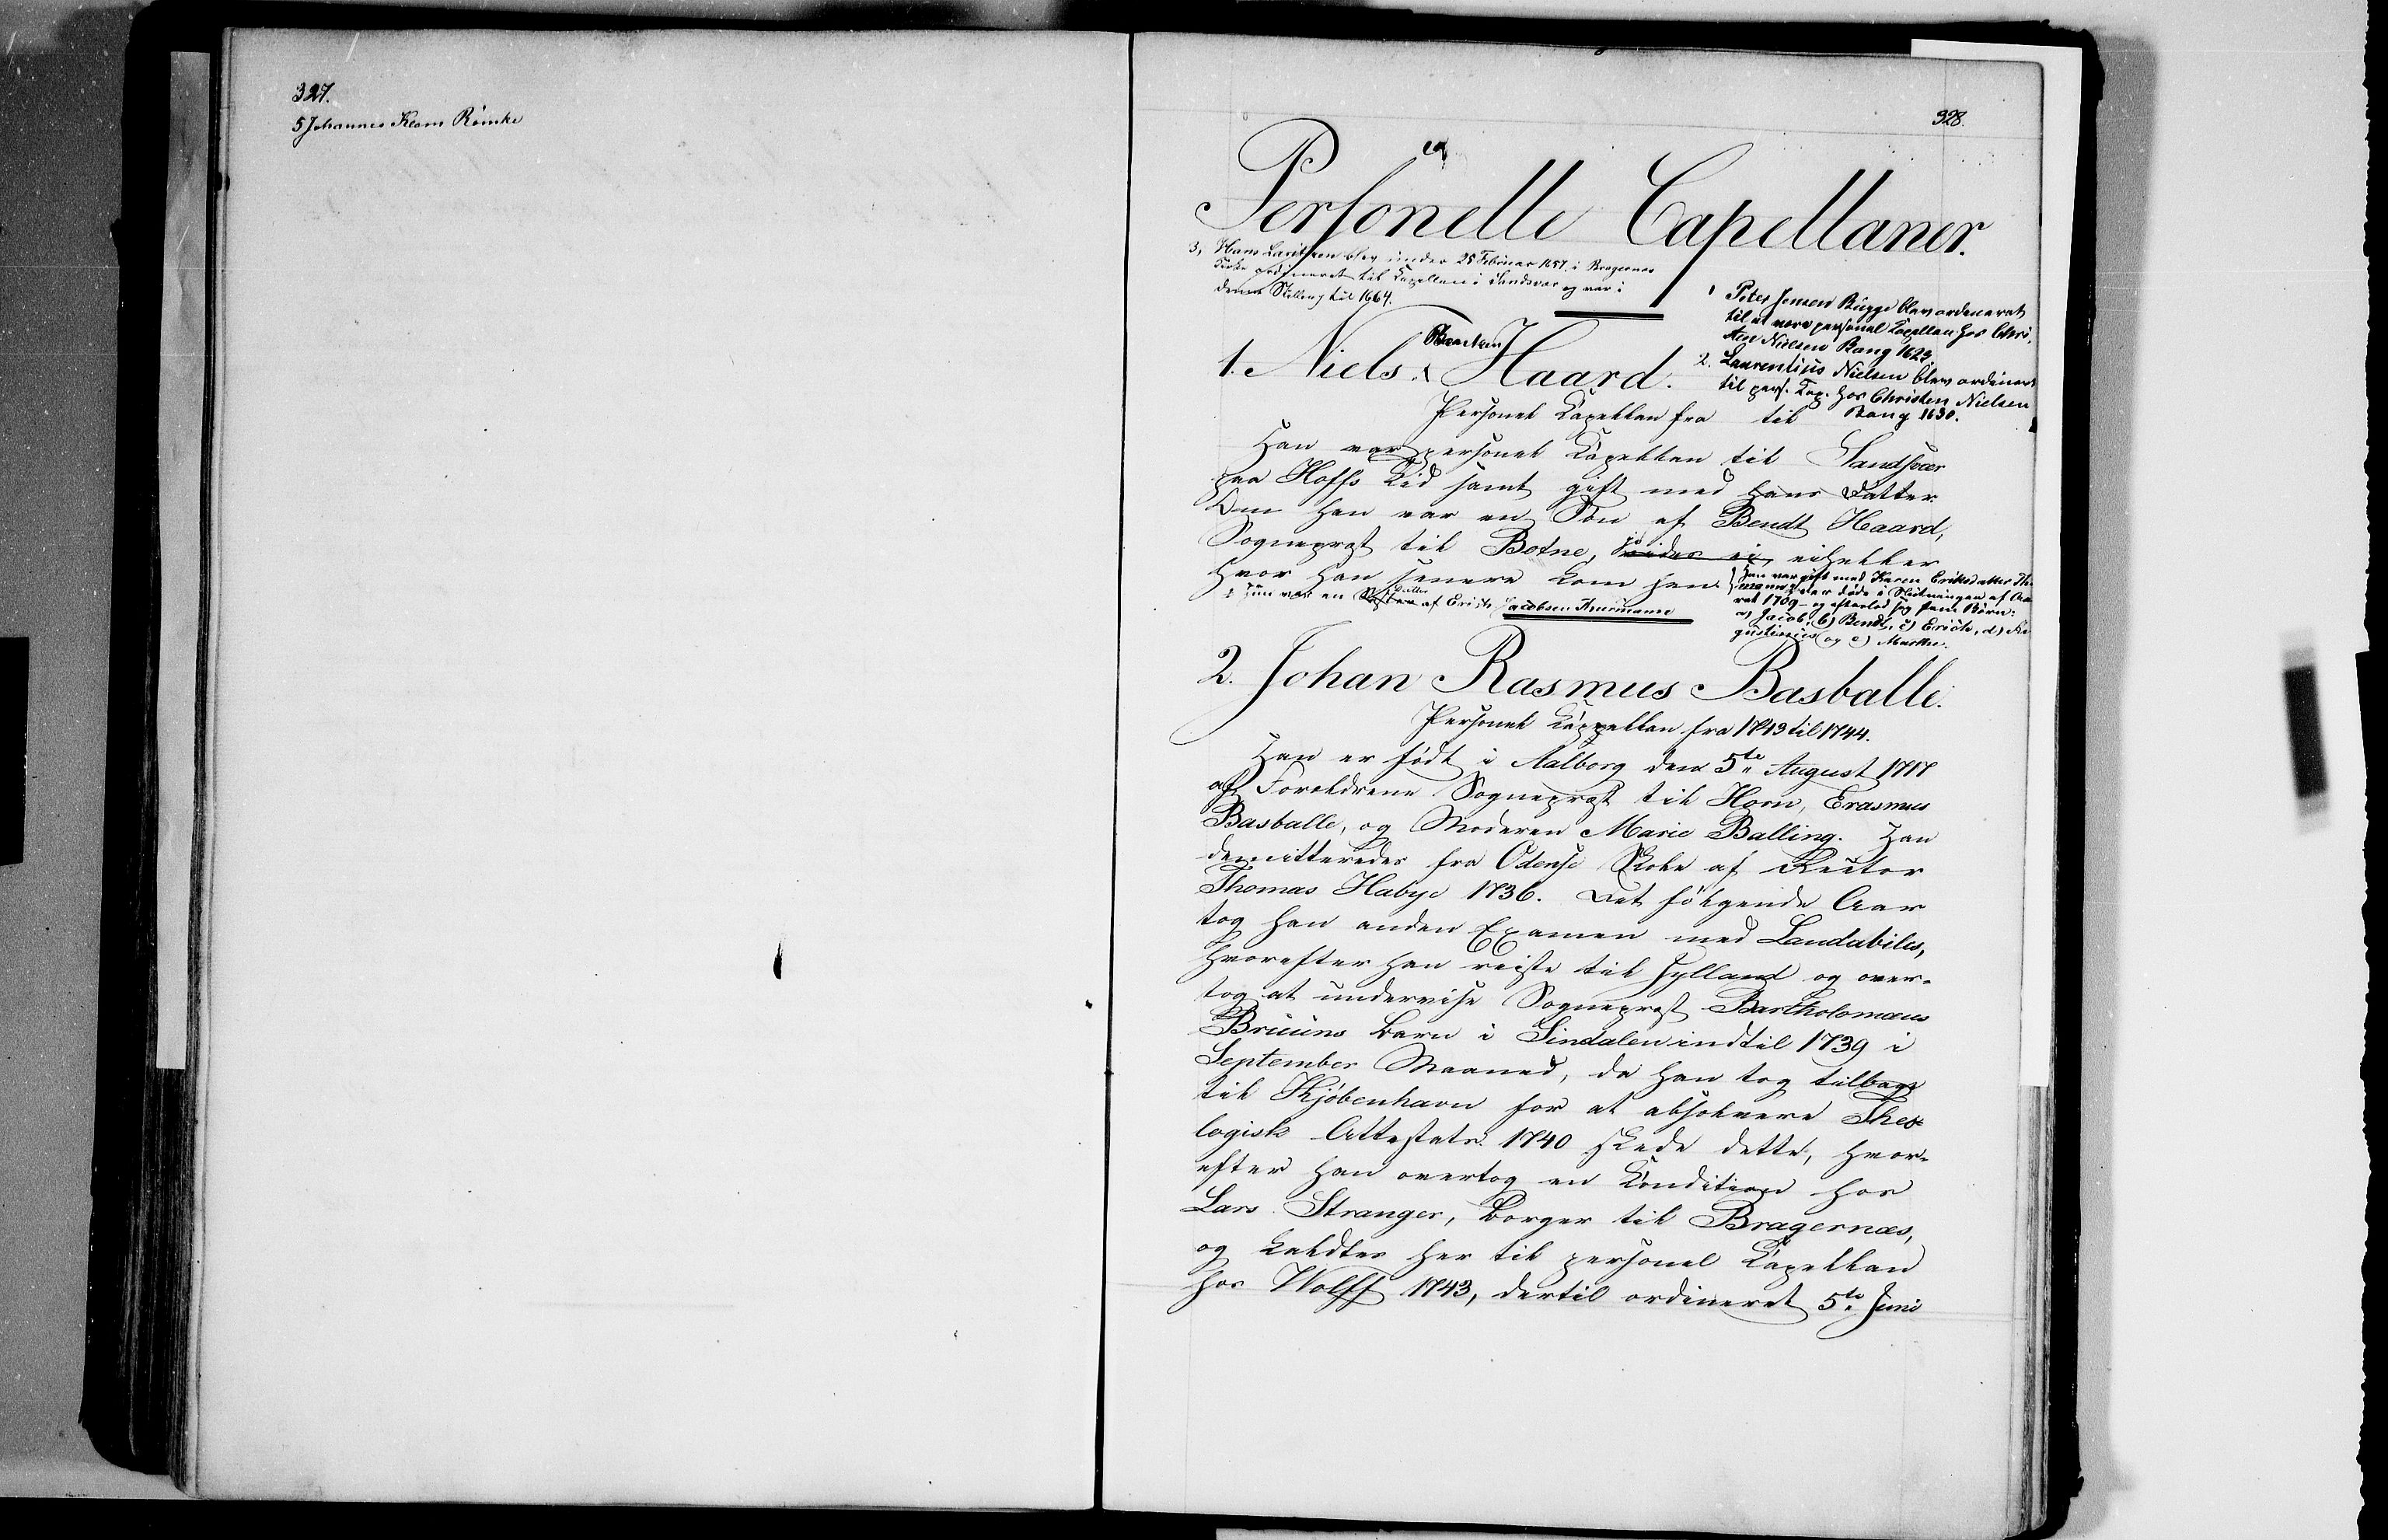 327.
5 Johannes Klom Römke
328.
Personelle Capellaner.
3, Hans Lauritsen blev under 25 Februar 1657 i Bragernæs
Kirke ordineret til Kapellan i Sandsvær og var i
denne Stilling til 1664.
1 Peter Jensen Bugge blev ordineret
til at være personel Kapellan hos Chri-
sten Nielsen Bang 1623
2. Laurentius Nielsen blev ordineret
til pers. Kap. hos Christen Nielsen
Bang 1630.
1. Niels Bentsen Haard.
Personel Kapellan fra til
Han var personel Kapellan til Sandsvær
paa Hoffs Tid samt gift med hans Datter.
Om han var en Søn af Bendt Haard,
Sogneprest til Botne, vides ei, eiheller
hvor han senere kom hen.
Han var gift med Karen Eriksdatter
der døde i Slutningen af Aa-
ret 1709 og efterlod sig fem Børn:
a) Jacob, b) Bendt, c) Erich, d)
og e) Marthe.
Hun var en Datter af Erich Jacobsen
2. Johan Rasmus Basballe.
Personel Kappellan fra 1743 til 1744.
Han er født i Aalborg den 5te August 1717
af Forældrene Sogneprest til Horn, Erasmus
Basballe, og Moderen Marie Balling. Han
demitteredes fra Odense Skole af Rector
Thomas Habye 1736. Det følgende Aar
tog han anden Examen med Laudabilis,
hvorefter han reiste til Jylland og over-
tog at undervise Sogneprest Bartholomæus
Bruuns Børn i Sindalen indtil 1739 i
September Maaned, da han tog tilbage
til Kjøbenhavn for at absolvere Theo-
logisk Attestats. 1740 skede dette, hvor-
efter han overtog en Kondition hos
Lars Stranger, Borger til Bragernæs,
og kaldtes her til personel Kapellan
hos Wolff 1743, dertil ordineret 5te Juni